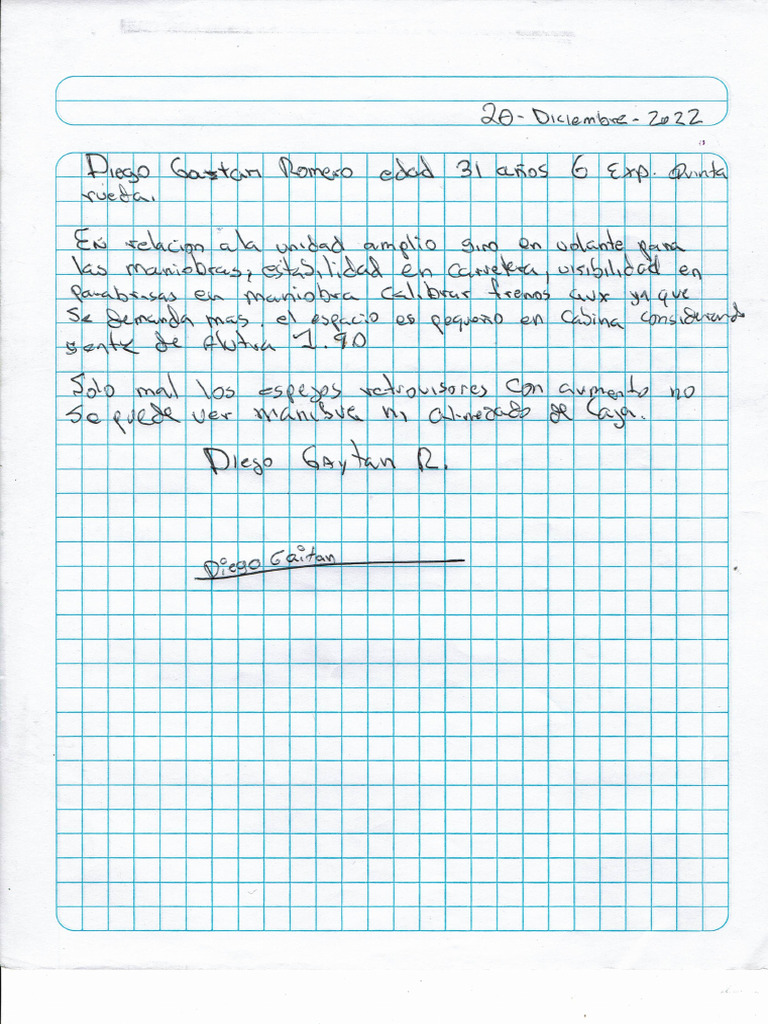 20-Diciembre-2022
Diego Gaytan Romero edad 31 años 6 Exp. Quinta
rueda.
En relacion ala unidad amplio giro en volante para
las maniobras, estabilidad en carretera, visibilidad en
parabrisas en maniobra calibrar frenos aux ya que
se demanda mas. el espacio es pequeño en cabina considerando
gente de altura 1.90
Solo mal los espejos retrovisores con aumento no
se puede ver ni alineado de caja.
Diego Gaytan R.
Diego Gaitan